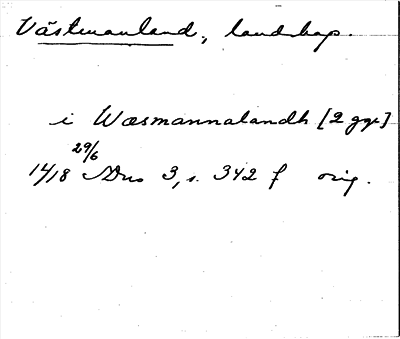 Västmanland, landskap.
i Wæsmannalandh [2 ggr]
29/6
14/18 DNs 3, s. 342 f orig.